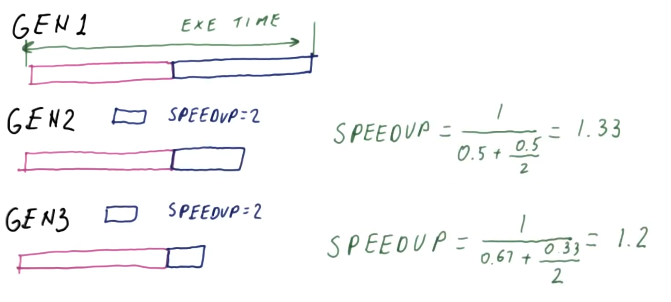 GEN1
EXE TIME
GEN2 SPEEDUP=2
SPEEDUP = 1 / (0.5 + 0.5/2) = 1.33
GEN3 SPEEDUP=2
SPEEDUP = 1 / (0.67 + 0.33/2) = 1.2